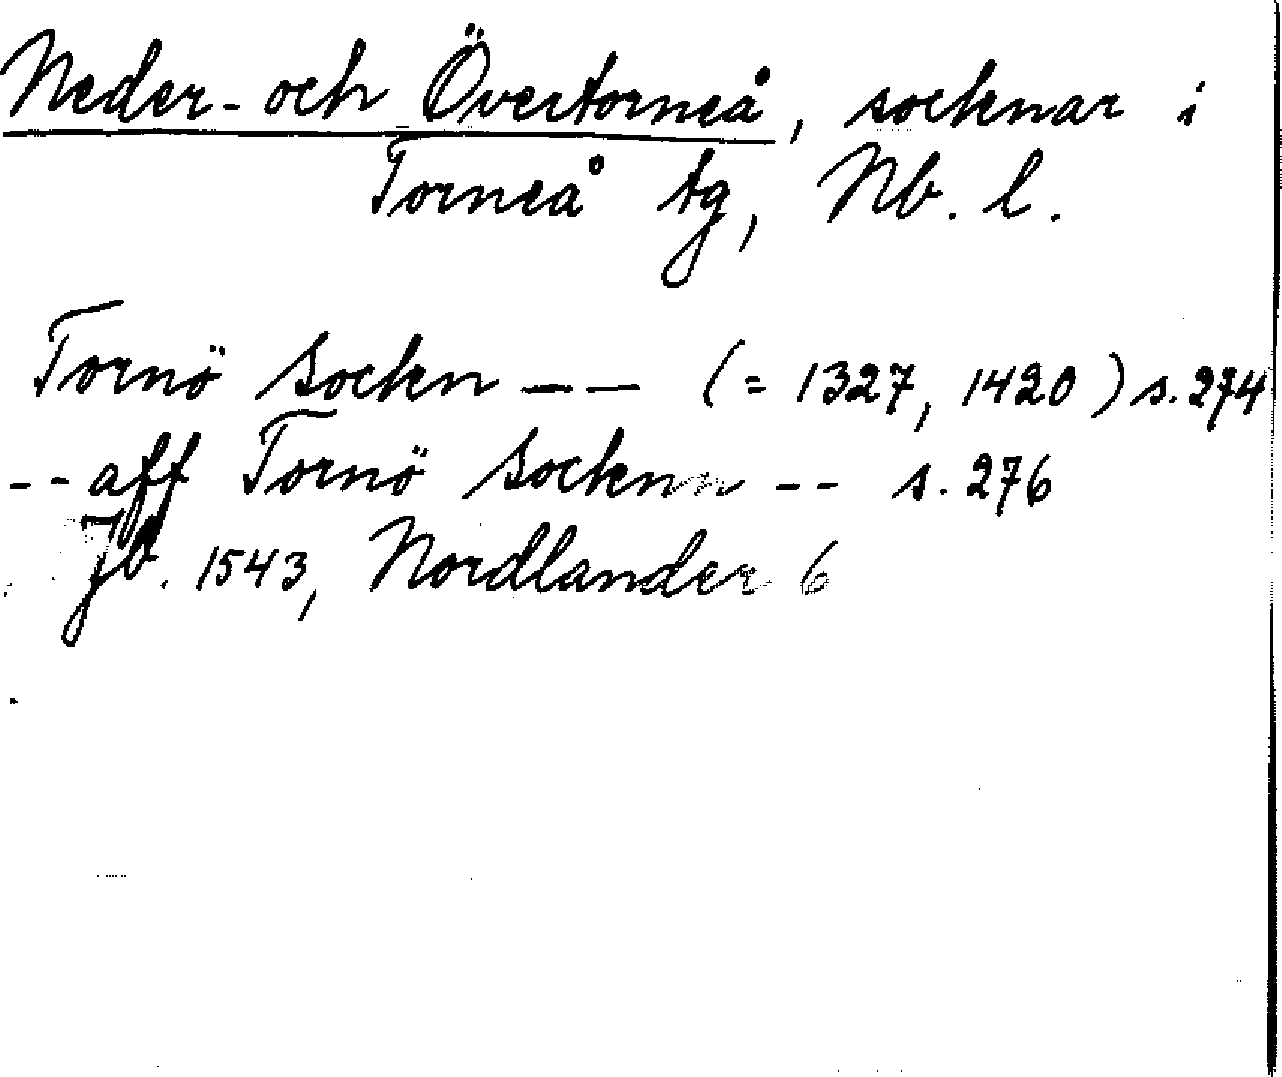 Neder- och Övertorneå, socknar i
Torneå tg, Nb. l.
Tornö Sockn -- (= 1327, 1420) s. 274
-- aff Tornö Socknn -- s. 276
Jb. 1543, Nordlander 6